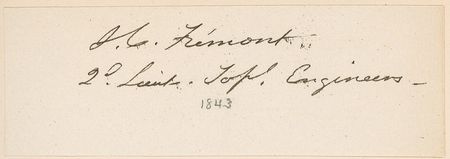 J. C. Frémont.
2d. Lieut. Topl. Engineers
1843